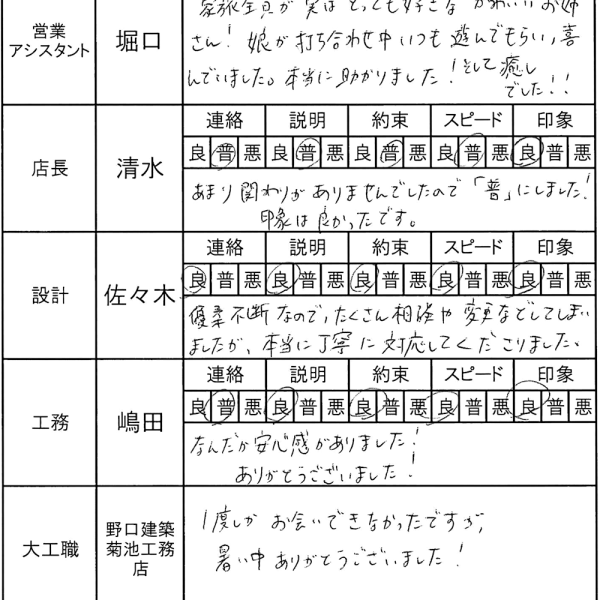 営業
アシスタント
堀口
家族全員が実はとっても好きなかわいいお姉
さん！娘が打ち合わせ中いつも遊んでもらい、喜
んでいました。本当に助かりました！そして癒し
でした！！
店長
清水
連絡 説明 約束 スピード 印象
良 普 悪 良 普 悪 良 普 悪 良 普 悪 良 普 悪
あまり関わりがありませんでしたので「普」にしました！
印象は良かったです。
設計
佐々木
連絡 説明 約束 スピード 印象
良 普 悪 良 普 悪 良 普 悪 良 普 悪 良 普 悪
優柔不断なので、たくさん相談や変更などしてしまい
ましたが、本当に丁寧に対応してくださりました。
工務
嶋田
連絡 説明 約束 スピード 印象
良 普 悪 良 普 悪 良 普 悪 良 普 悪 良 普 悪
なんだか安心感がありました！
ありがとうございました！
大工職
野口建築
菊池工務
店
1度しかお会いできなかったですが、
暑い中ありがとうございました！